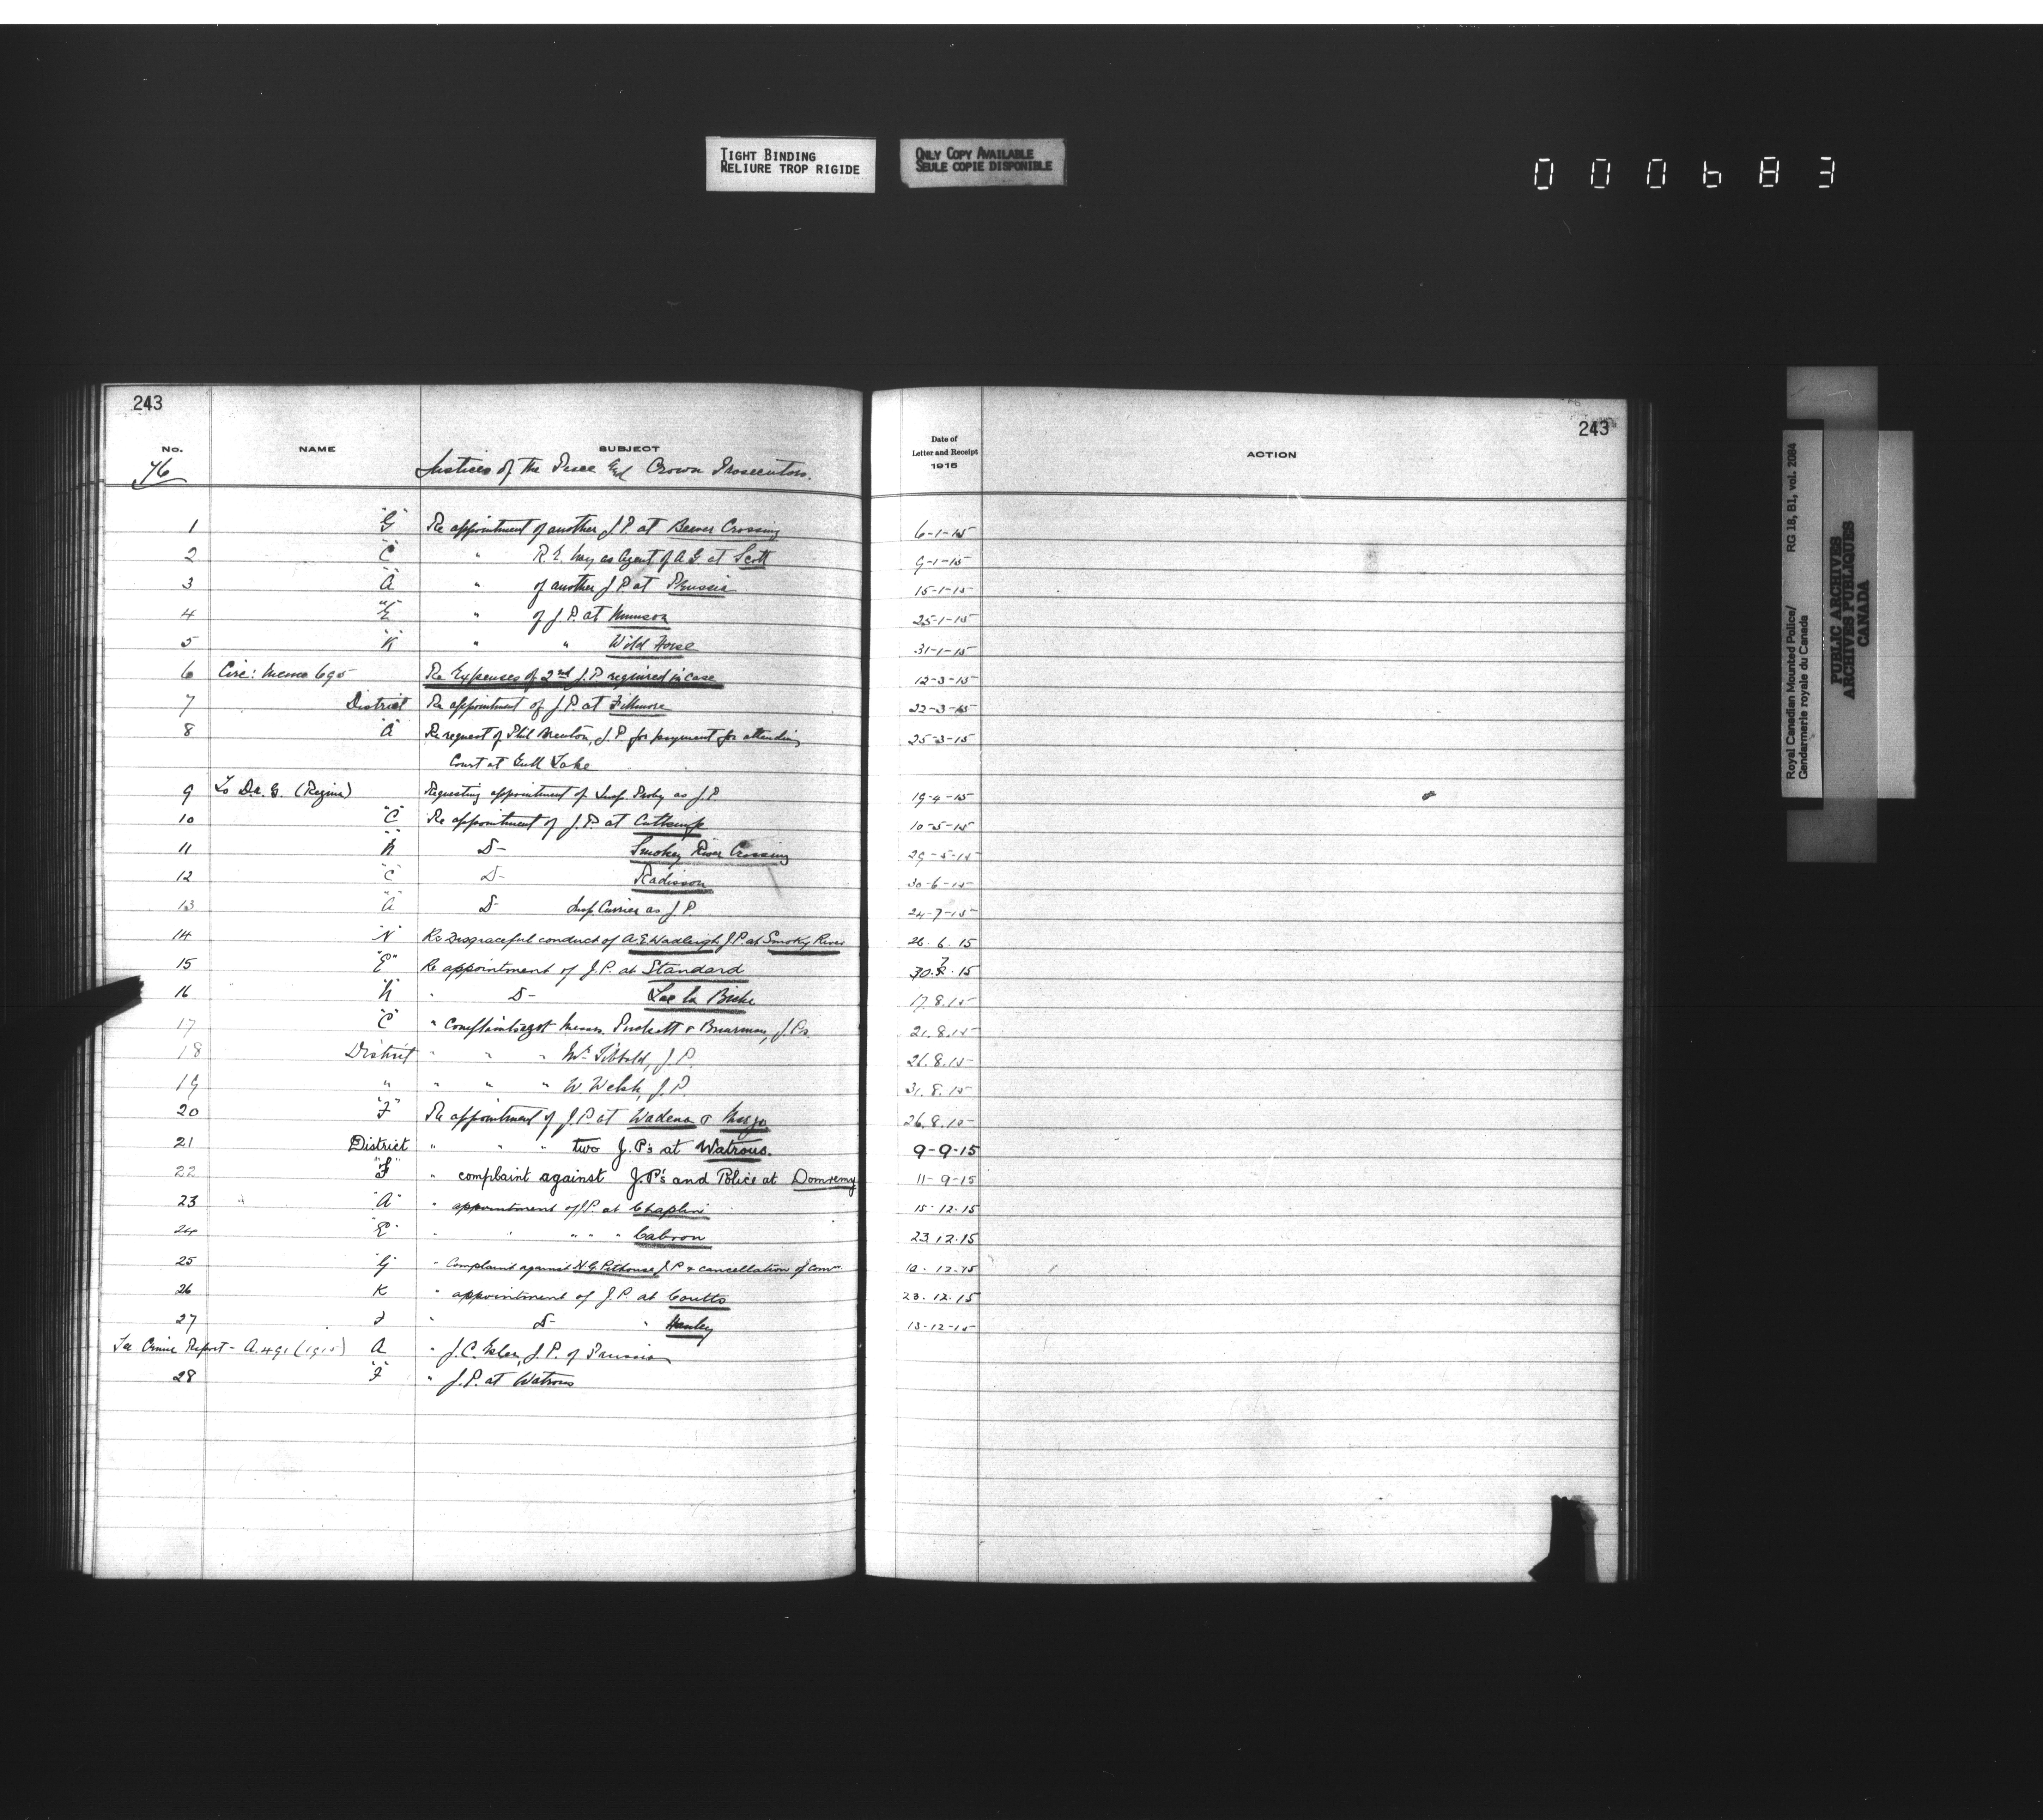 TIGHT BINDING
RELIURE TROP RIGIDE
ONLY COPY AVAILABLE
SEULE COPIE DISPONIBLE
000683
243
243
No. NAME SUBJECT Date of Letter and Receipt 1915 ACTION
76 Justices of the Peace and Crown Prosecutors.
1 "G" Re appointment of another J.P. at Beaver Crossing 6-1-15
2 "C" " R. E. as Agent of A.G. at Scott 9-1-15
3 "A" " of another J.P. at Prussia 15-1-15
4 "E" " of J.P. at Munson 25-1-15
5 "K" " " Wild Horse 31-1-15
6 Circ: Memo 695 Re Expenses of 2nd J.P. required in case 12-3-15
7 District Re appointment of J.P. at Fillmore 22-3-15
8 "A" Re request of Phil Newton, J.P. for payment for attending 25-3-15
Court at Gull Lake
9 To D.A.G. (Regina) Requesting appointment of Insp. Proby as J.P. 19-4-15
10 "C" Re appointment of J.P. at 10-5-15
11 "N" D- Smoky River Crossing 29-5-15
12 "C" D- Radisson 30-6-15
13 "A" D- Insp. Currier as J.P. 24-7-15
14 "N" Re Disgraceful conduct of A.E. Wadleigh J.P. at Smoky River 26.6.15
15 "E" Re appointment of J.P. at Standard 30.7.15
16 "N" " D- Lac la Biche 17.8.15
17 "C" " Complaints agst Messrs. & J.Ps 21.8.15
18 District " " " Mr. Tibbald, J.P. 26.8.15
19 " " " " W. Webb, J.P. 31.8.15
20 "F" Re appointment of J.P. at Wadena & Margo 26.8.15
21 District " " " two J.P's at Watrous. 9-9-15
22 "F" " complaint against J.P's and Police at Domremy 11-9-15
23 "A" " appointment of J.P. at Chaplin 15-12-15
24 "E" " " " " " 23.12.15
25 "G" " Complaint against N.G. Pithouse J.P. & cancellation of Comn. 10.12.15
26 K " appointment of J.P. at Coutts 23.12.15
27 F " D- " Hanley 13-12-15
See Crime Report - A.491 (1915) A " J.C. J.P. of Prussia
28 "F" " J.P. at Watrous
Royal Canadian Mounted Police/
Gendarmerie royale du Canada
RG 18, B1, vol. 2084
PUBLIC ARCHIVES
ARCHIVES PUBLIQUES
CANADA